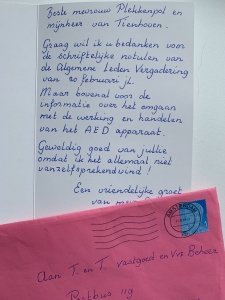 Beste mevrouw Plekkenpol en
mijnheer van Tienhoven.
Graag wil ik u bedanken voor
de schriftelijke notulen van
de Algemene Leden Vergadering
van 20 februari jl.
Maar bovenal voor de
informatie over het omgaan
met de werking en handelen
van het AED apparaat.
Geweldig goed van jullie
omdat ik het allemaal niet
vanzelfsprekend vind!
Een vriendelijke groet
van
Aan T. en T. vastgoed en VvE Beheer
Postbus 119